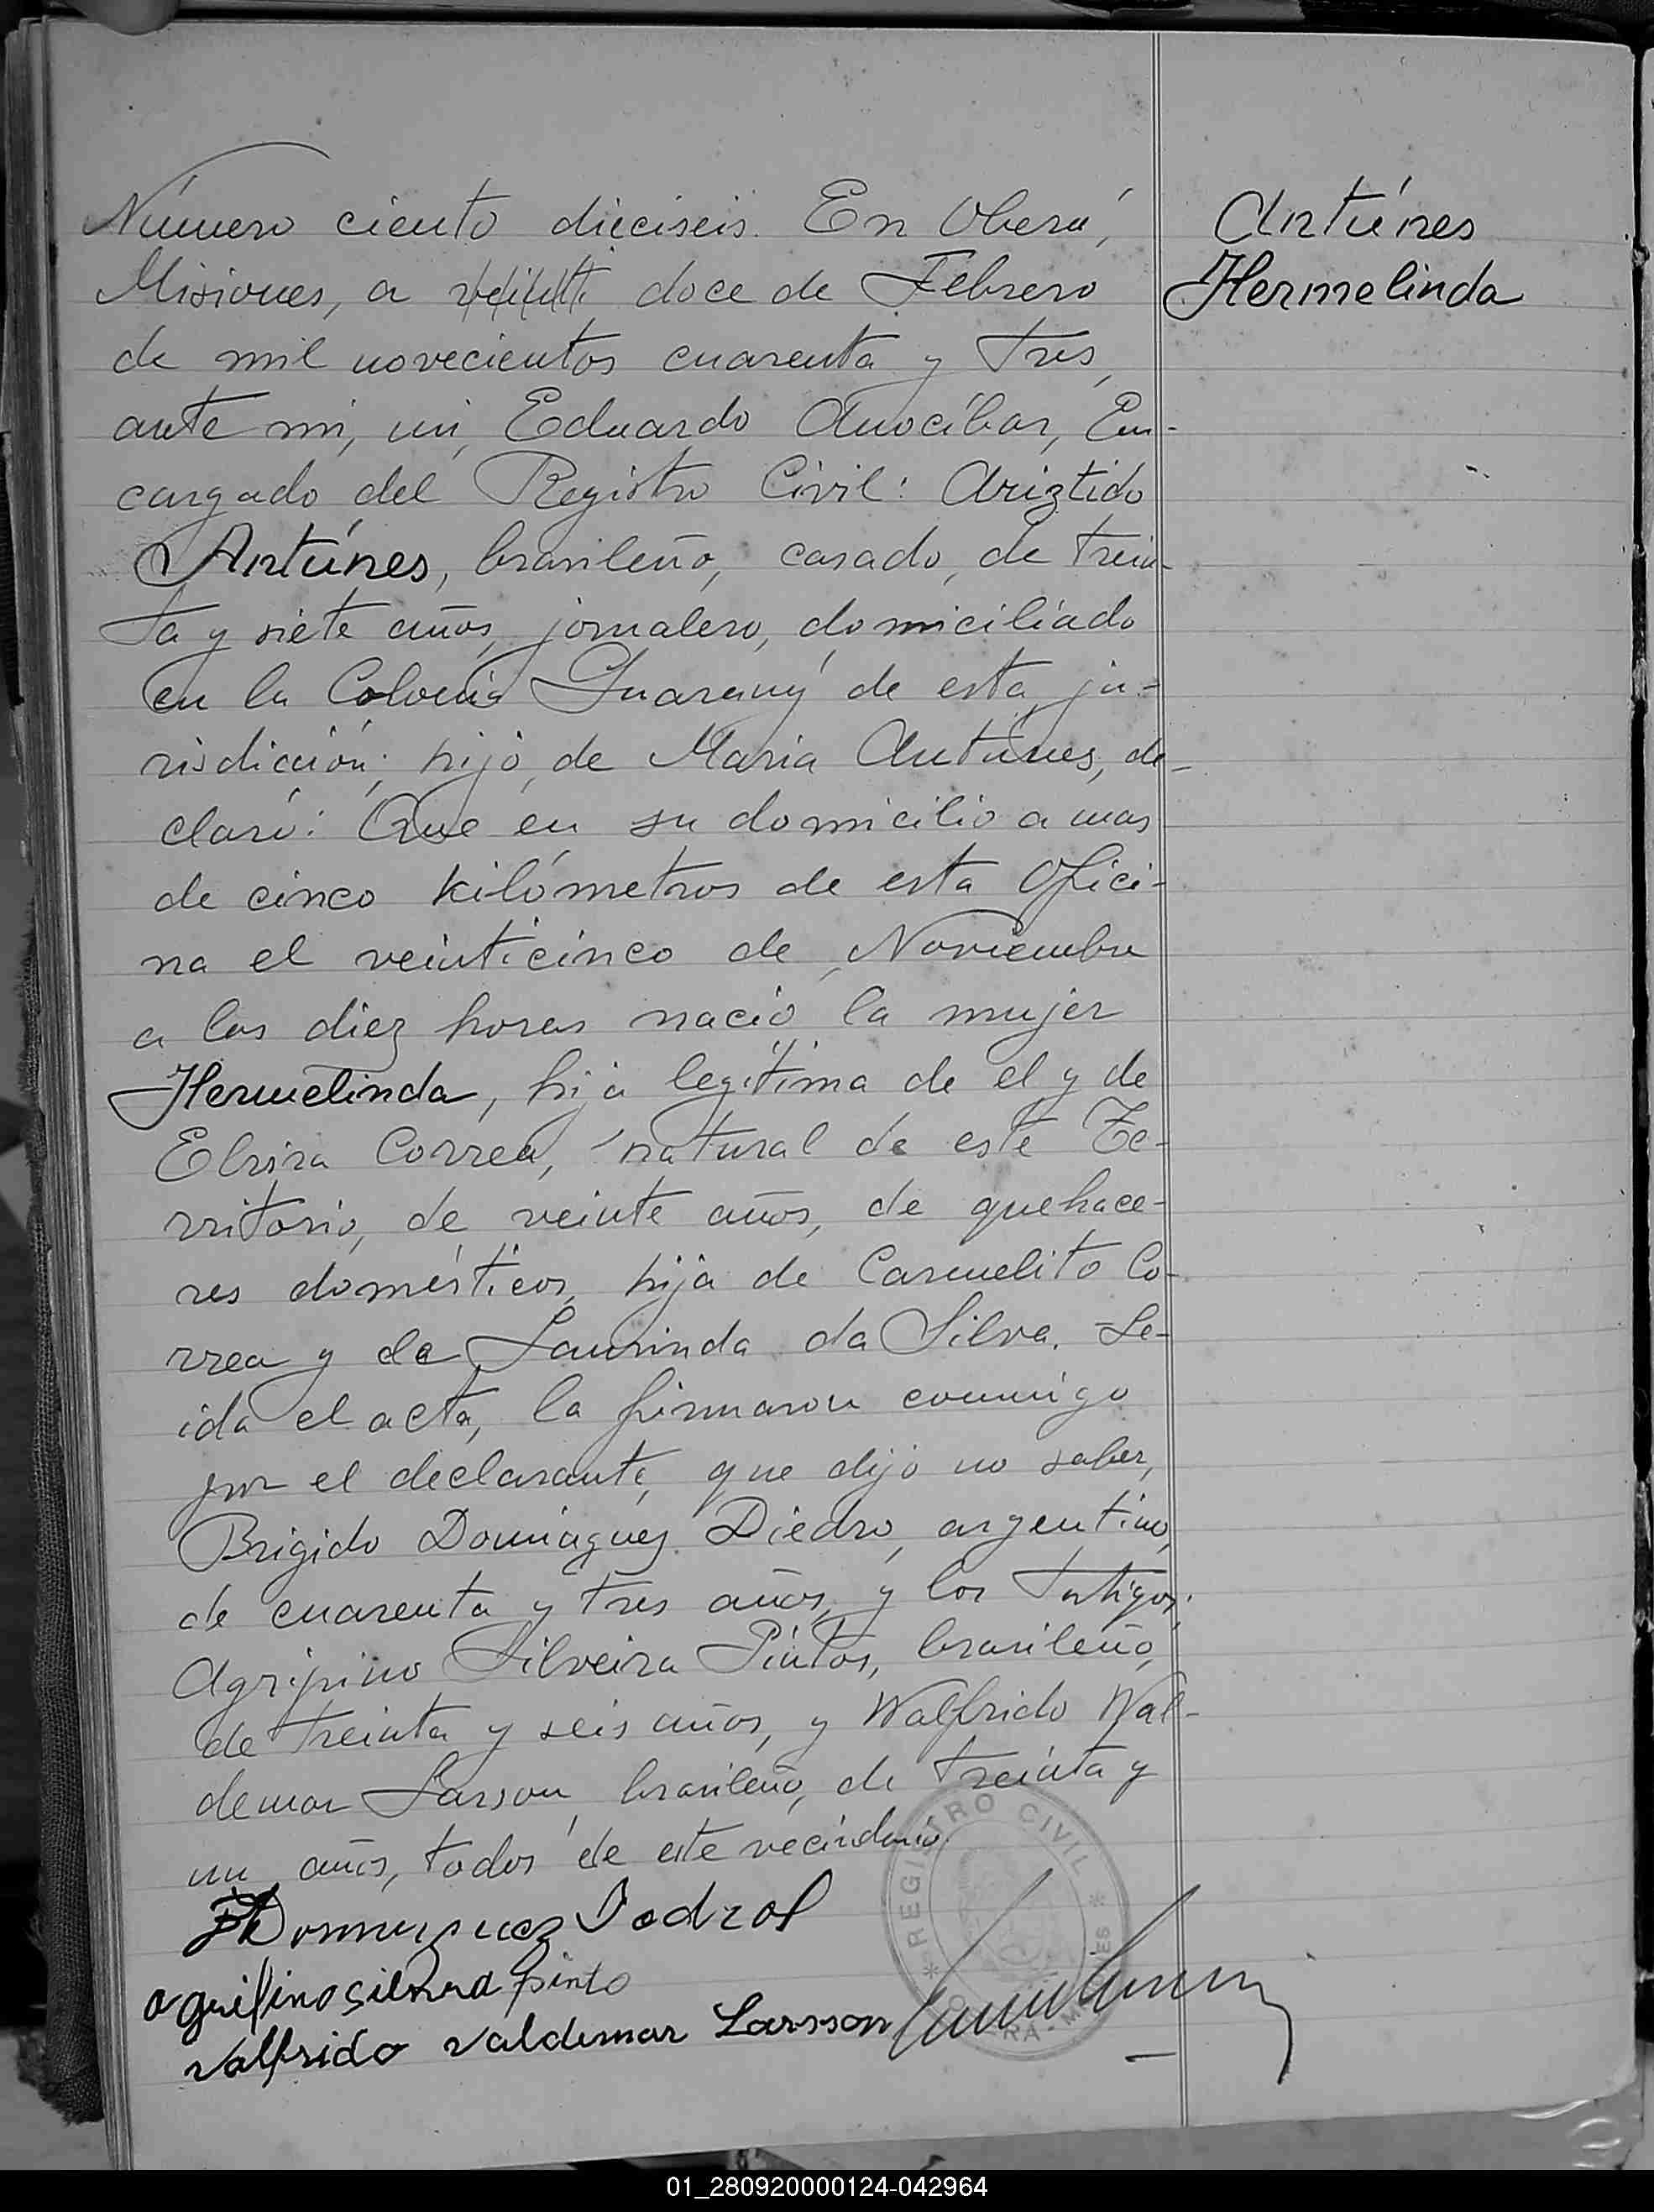 Número ciento dieciseis. En Oberá,
Misiones, a doce de Febrero
de mil novecientos cuarenta y tres,
ante mi, Eduardo Anocíbar, En-
cargado del Registro Civil: Ariztido
Antúnes, brasileño, casado, de trein-
ta y siete años, jornalero, domiciliado
en la Colonia Guarany de esta ju-
risdicción; hijo de Maria Antúnes, de-
claró: Que en su domicilio a mas
de cinco kilómetros de esta Ofici-
na el veinticinco de Noviembre
a las diez horas nació la mujer
Hermelinda, hija legítima de el y de
Elvira Correa, natural de este Te-
rritorio, de veinte años, de quehace-
res domésticos, hija de Carmelito Co-
rrea y de Laurinda da Silva. Le-
ida el acta, la firmaron conmigo
por el declarante, que dijo no saber,
Brigido Dominguez Diedro, argentino,
de cuarenta y tres años, y los testigos,
Agripino Silveira Pintos, brasileño,
de treinta y seis años, y Walfrido Wal-
demar Larson, brasileño, de treinta y
un años, todos de este vecindario.
agripino silvera pinto
valfrido valdemar Larsson
REGISTRO CIVIL
Antúnes
Hermelinda
01_280920000124-042964